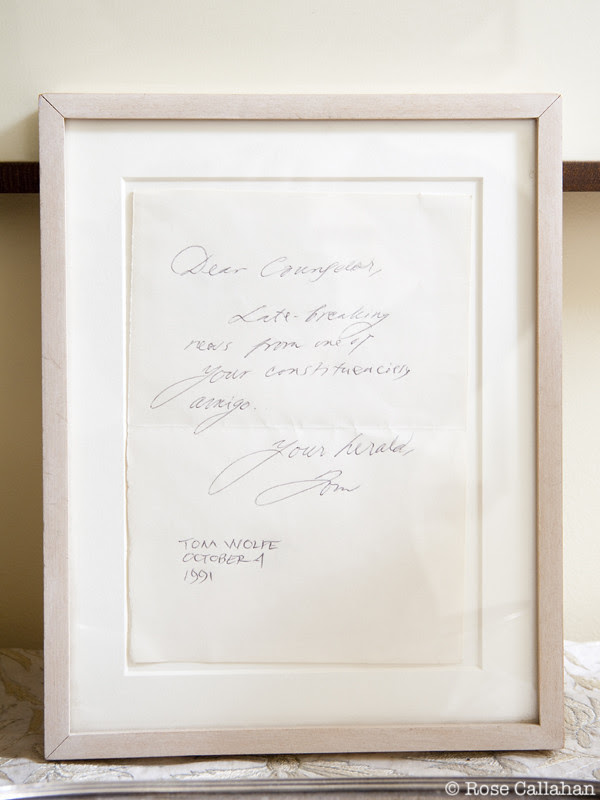 Dear Counselor,
Late-breaking
news from one of
your constituencies,
amigo.
Your herald,
Tom
TOM WOLFE
OCTOBER 4
1991
© Rose Callahan